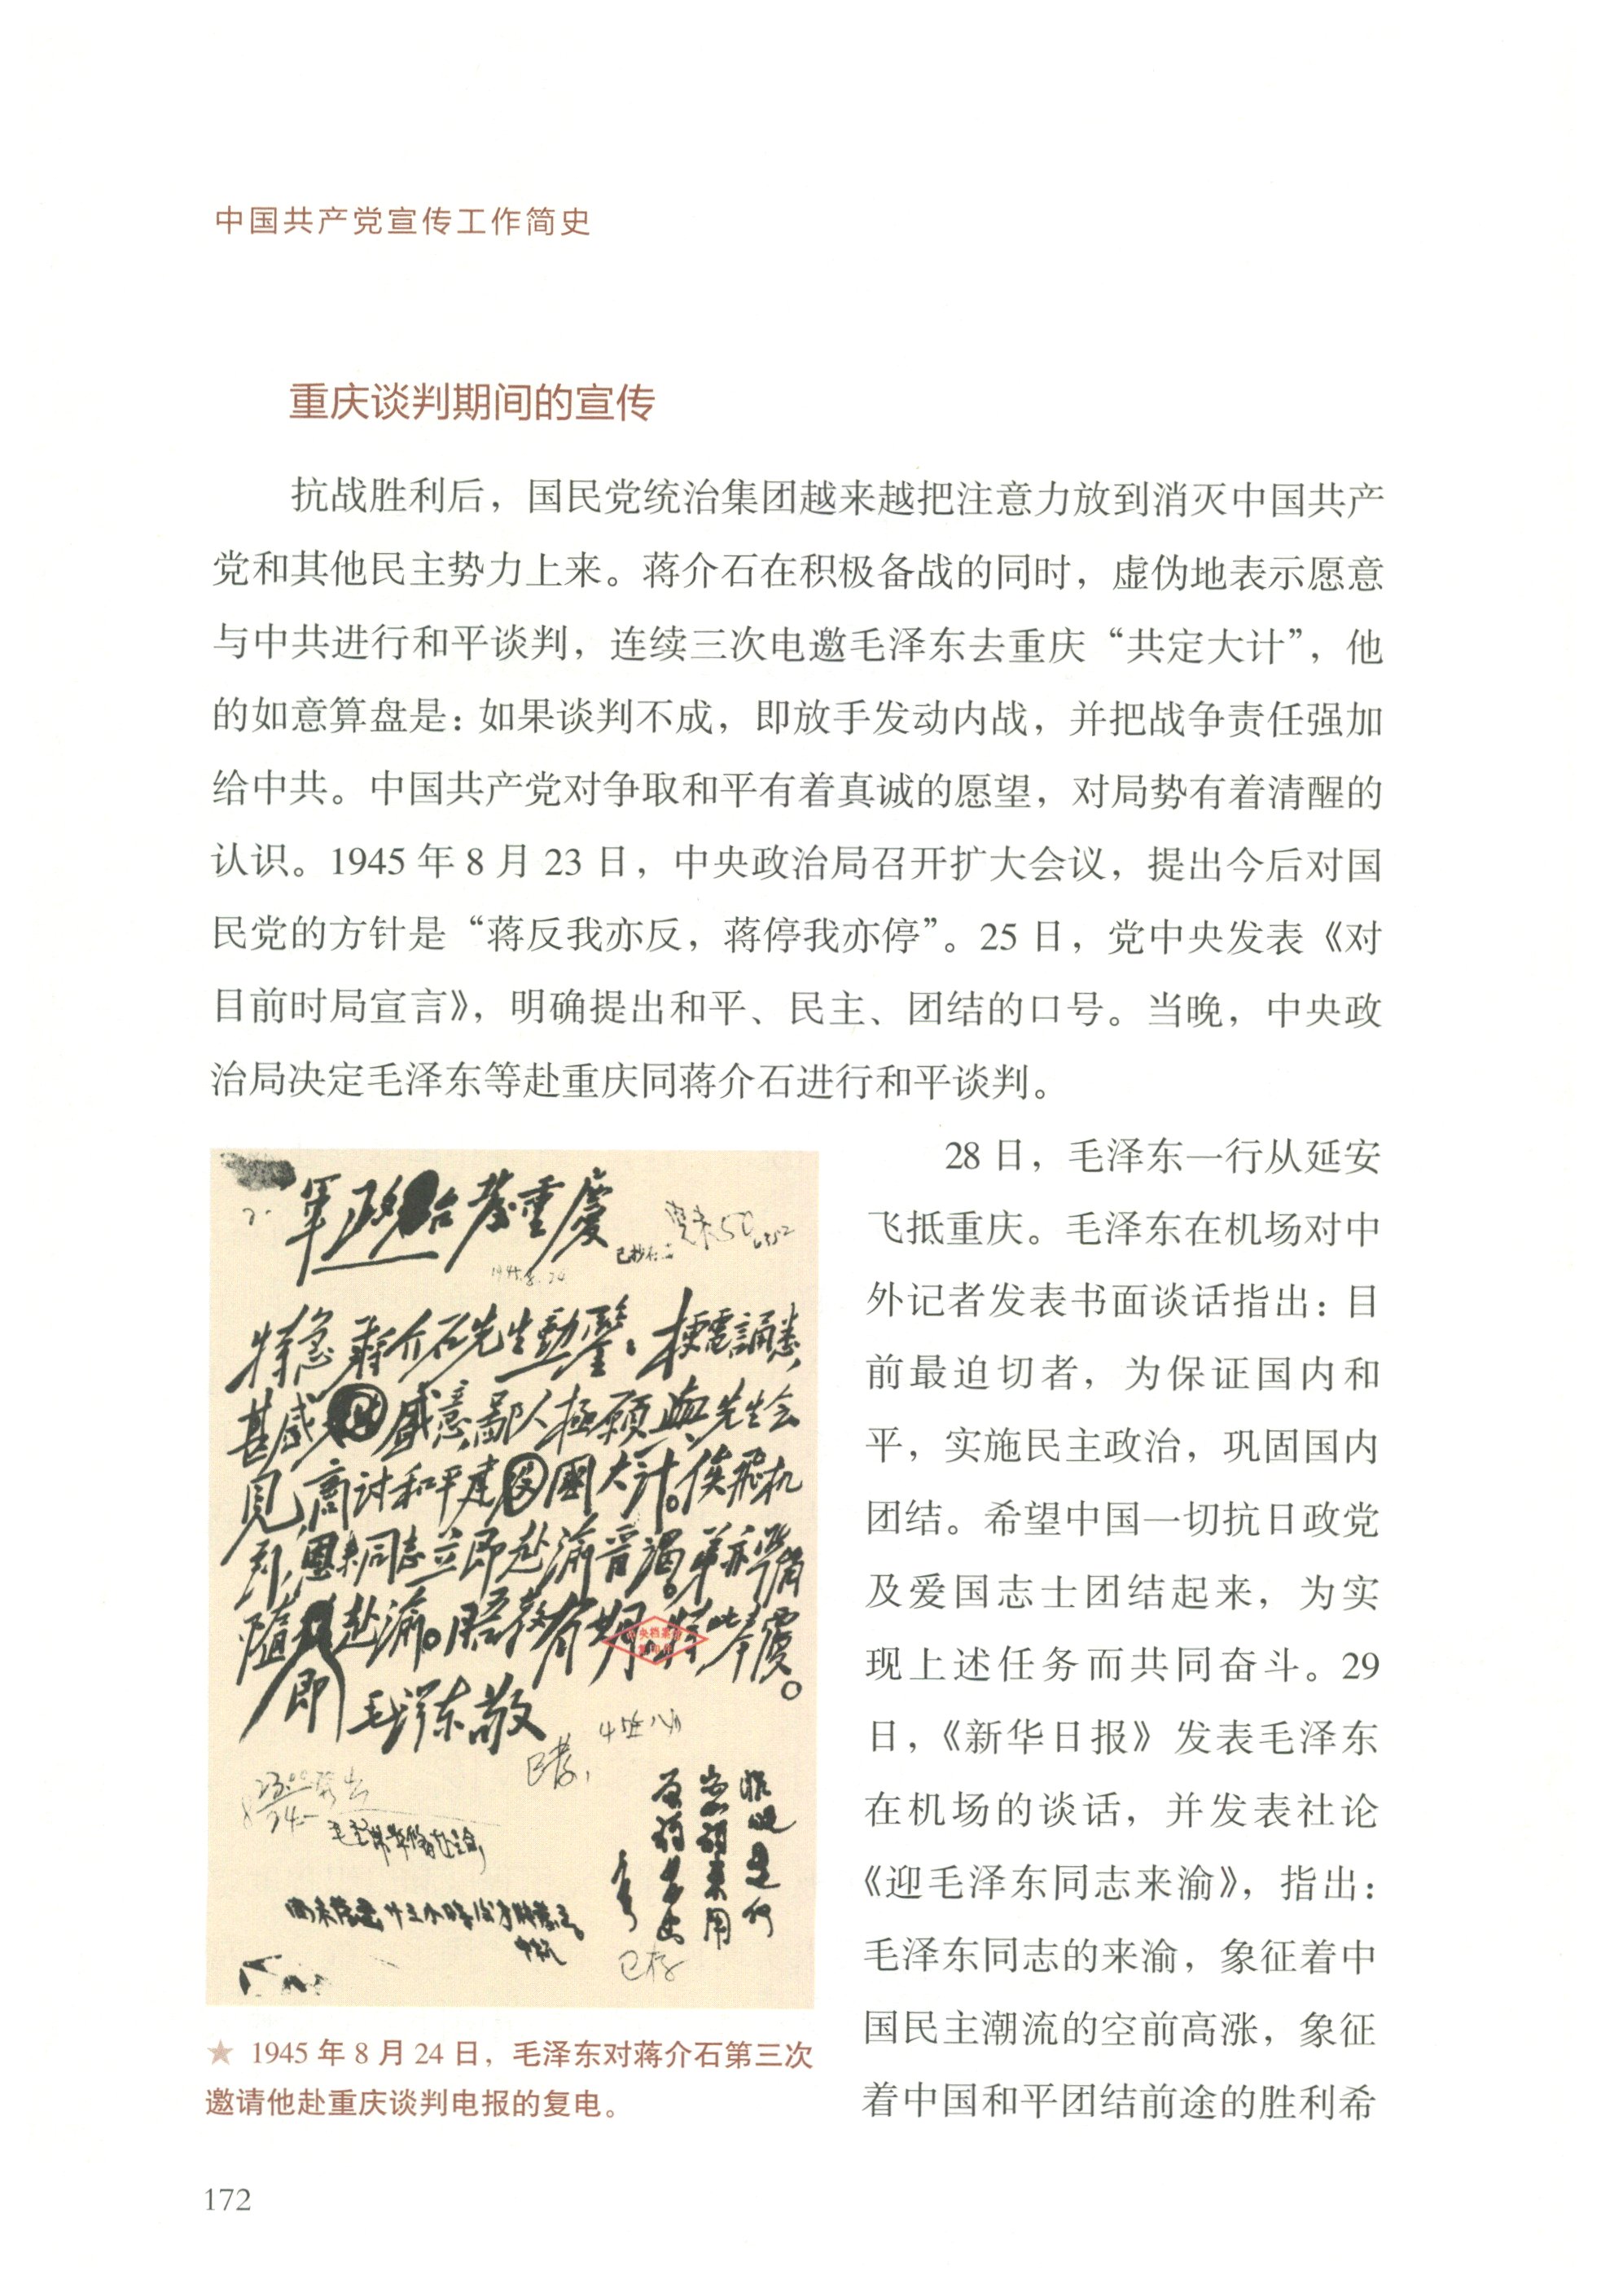 中国共产党宣传工作简史
重庆谈判期间的宣传
抗战胜利后，国民党统治集团越来越把注意力放到消灭中国共产
党和其他民主势力上来。蒋介石在积极备战的同时，虚伪地表示愿意
与中共进行和平谈判，连续三次电邀毛泽东去重庆“共定大计”，他
的如意算盘是：如果谈判不成，即放手发动内战，并把战争责任强加
给中共。中国共产党对争取和平有着真诚的愿望，对局势有着清醒的
认识。1945 年 8 月 23 日，中央政治局召开扩大会议，提出今后对国
民党的方针是“蒋反我亦反，蒋停我亦停”。25 日，党中央发表《对
目前时局宣言》，明确提出和平、民主、团结的口号。当晚，中央政
治局决定毛泽东等赴重庆同蒋介石进行和平谈判。
28 日，毛泽东一行从延安
飞抵重庆。毛泽东在机场对中
外记者发表书面谈话指出：目
前最迫切者，为保证国内和
平，实施民主政治，巩固国内
团结。希望中国一切抗日政党
及爱国志士团结起来，为实
现上述任务而共同奋斗。29
日，《新华日报》发表毛泽东
在机场的谈话，并发表社论
《迎毛泽东同志来渝》，指出：
毛泽东同志的来渝，象征着中
国民主潮流的空前高涨，象征
着中国和平团结前途的胜利希
重慶
1945.8.24
特急 蔣介石先生勳鑒：梗電誦悉，
甚感盛意。鄙人極願與先生会
見，商討和平建國大計。俟飛机
到，恩来同志立即赴渝晋謁。弟亦準備
隨即赴渝。晤教有期，特此奉覆。
毛泽东敬
★ 1945 年 8 月 24 日，毛泽东对蒋介石第三次
邀请他赴重庆谈判电报的复电。
172